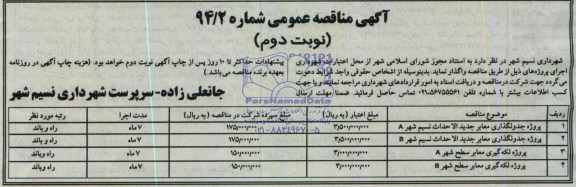 آگهی مناقصه عمومی شماره ۹۴/۲
(نوبت دوم)
شهرداری نسیم شهر در نظر دارد به استناد مجوز شورای اسلامی شهر از محل اعتبارات شهرداری
اجرای پروژه‌های ذیل از طریق مناقصه واگذار نماید. بدینوسیله از اشخاص حقوقی واجد شرایط دعوت
می‌گردد جهت شرکت در مناقصه و دریافت اسناد به امور قراردادهای شهرداری مراجعه نمایند و یا جهت
کسب اطلاعات بیشتر با شماره تلفن ۵۶۷۵۵۵۶۱-۰۲۱ تماس حاصل فرمائید. ضمنا مهلت ارسال
پیشنهادات حداکثر تا ۱۰ روز پس از چاپ آگهی نوبت دوم خواهد بود. (هزینه چاپ آگهی در روزنامه
بعهده برنده مناقصه می‌باشد.)
جانعلی زاده-سرپرست شهرداری نسیم شهر
ParsNamadData
۰۲۱-۸۸۳۴۹۶۷۰-۵
ردیف موضوع مناقصه مبلغ اعتبار (به ریال) مبلغ سپرده شرکت در مناقصه (به ریال) مدت اجرا رتبه مورد نظر
۱ پروژه جدولگذاری معابر جدید الاحداث نسیم شهر A ۳/۵۰۰/۰۰۰/۰۰۰ ۱۷۵/۰۰۰/۰۰۰ ۷ماه راه و باند
۲ پروژه جدولگذاری معابر جدید الاحداث نسیم شهر B ۳/۵۰۰/۰۰۰/۰۰۰ ۱۷۵/۰۰۰/۰۰۰ ۷ماه راه و باند
۳ پروژه لکه گیری معابر سطح شهر A ۳/۰۰۰/۰۰۰/۰۰۰ ۱۵۰/۰۰۰/۰۰۰ ۷ماه راه و باند
۴ پروژه لکه گیری معابر سطح شهر B ۳/۰۰۰/۰۰۰/۰۰۰ ۱۵۰/۰۰۰/۰۰۰ ۷ماه راه و باند